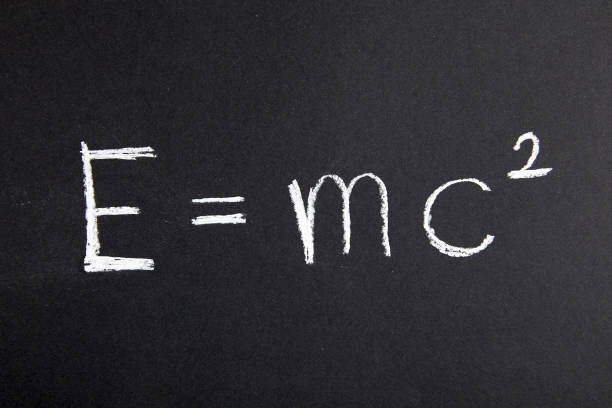 E = mc²